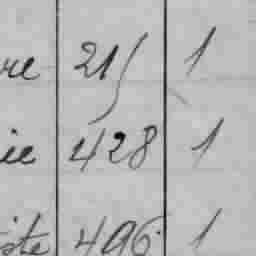 re 215 1
ie 428 1
iste 496 1